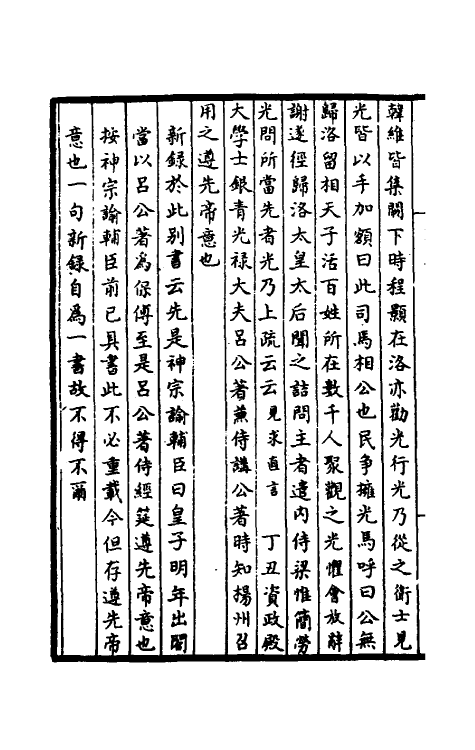 韓維皆集闕下時程顥在洛亦勸光行光乃從之衛士見
光皆以手加額曰此司馬相公也民爭擁光馬呼曰公無
歸洛留相天子活百姓所在數千人聚觀之光懼會放辭
謝遂徑歸洛太皇太后聞之詰問主者遣内侍梁惟簡勞
光問所當先者光乃上疏云云見求直言 丁丑資政殿
大學士銀青光禄大夫呂公著兼侍講公著時知揚州召
用之遵先帝意也
新録於此别書云先是神宗諭輔臣曰皇子明年出閤
當以呂公著為保傅至是呂公著侍經筵遵先帝意也
按神宗諭輔臣前已具書此不必重載今但存遵先帝
意也一句新録自為一書故不得不爾